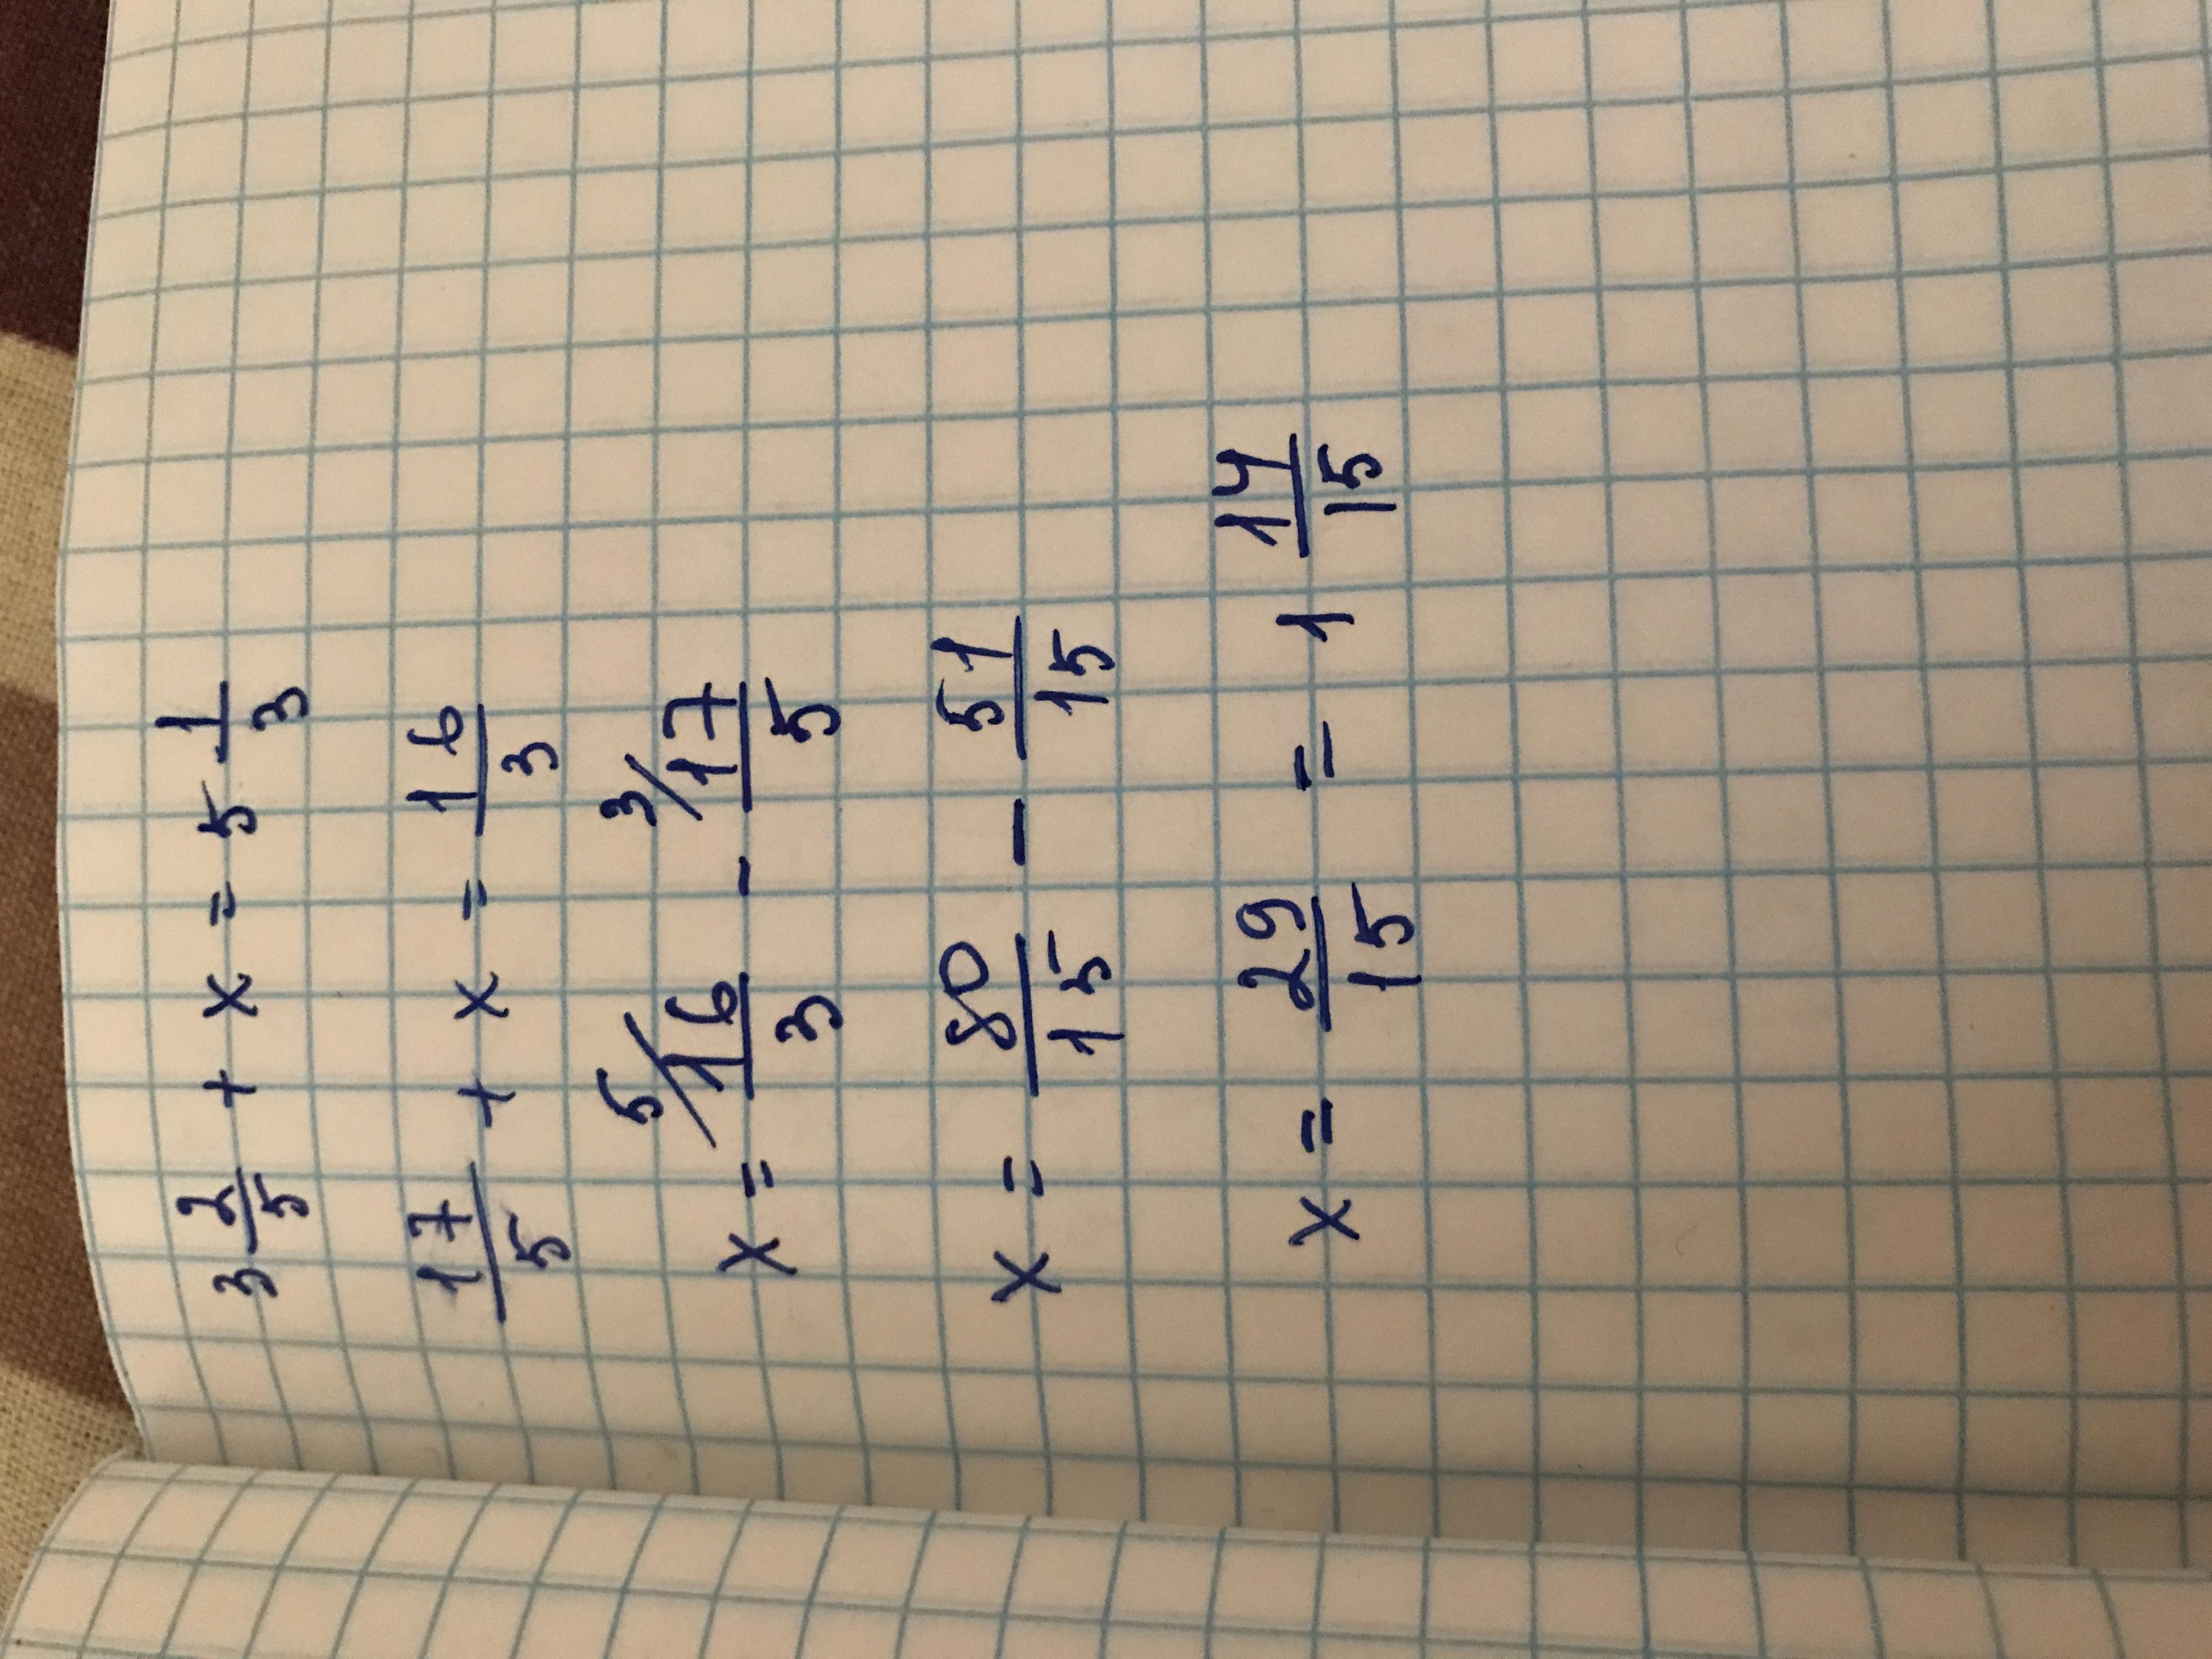 3 2/5 + x = 5 1/3
17/5 + x = 16/3
x = 5/ 16/3 - 3/ 17/5
x = 80/15 - 51/15
x = 29/15 = 1 14/15